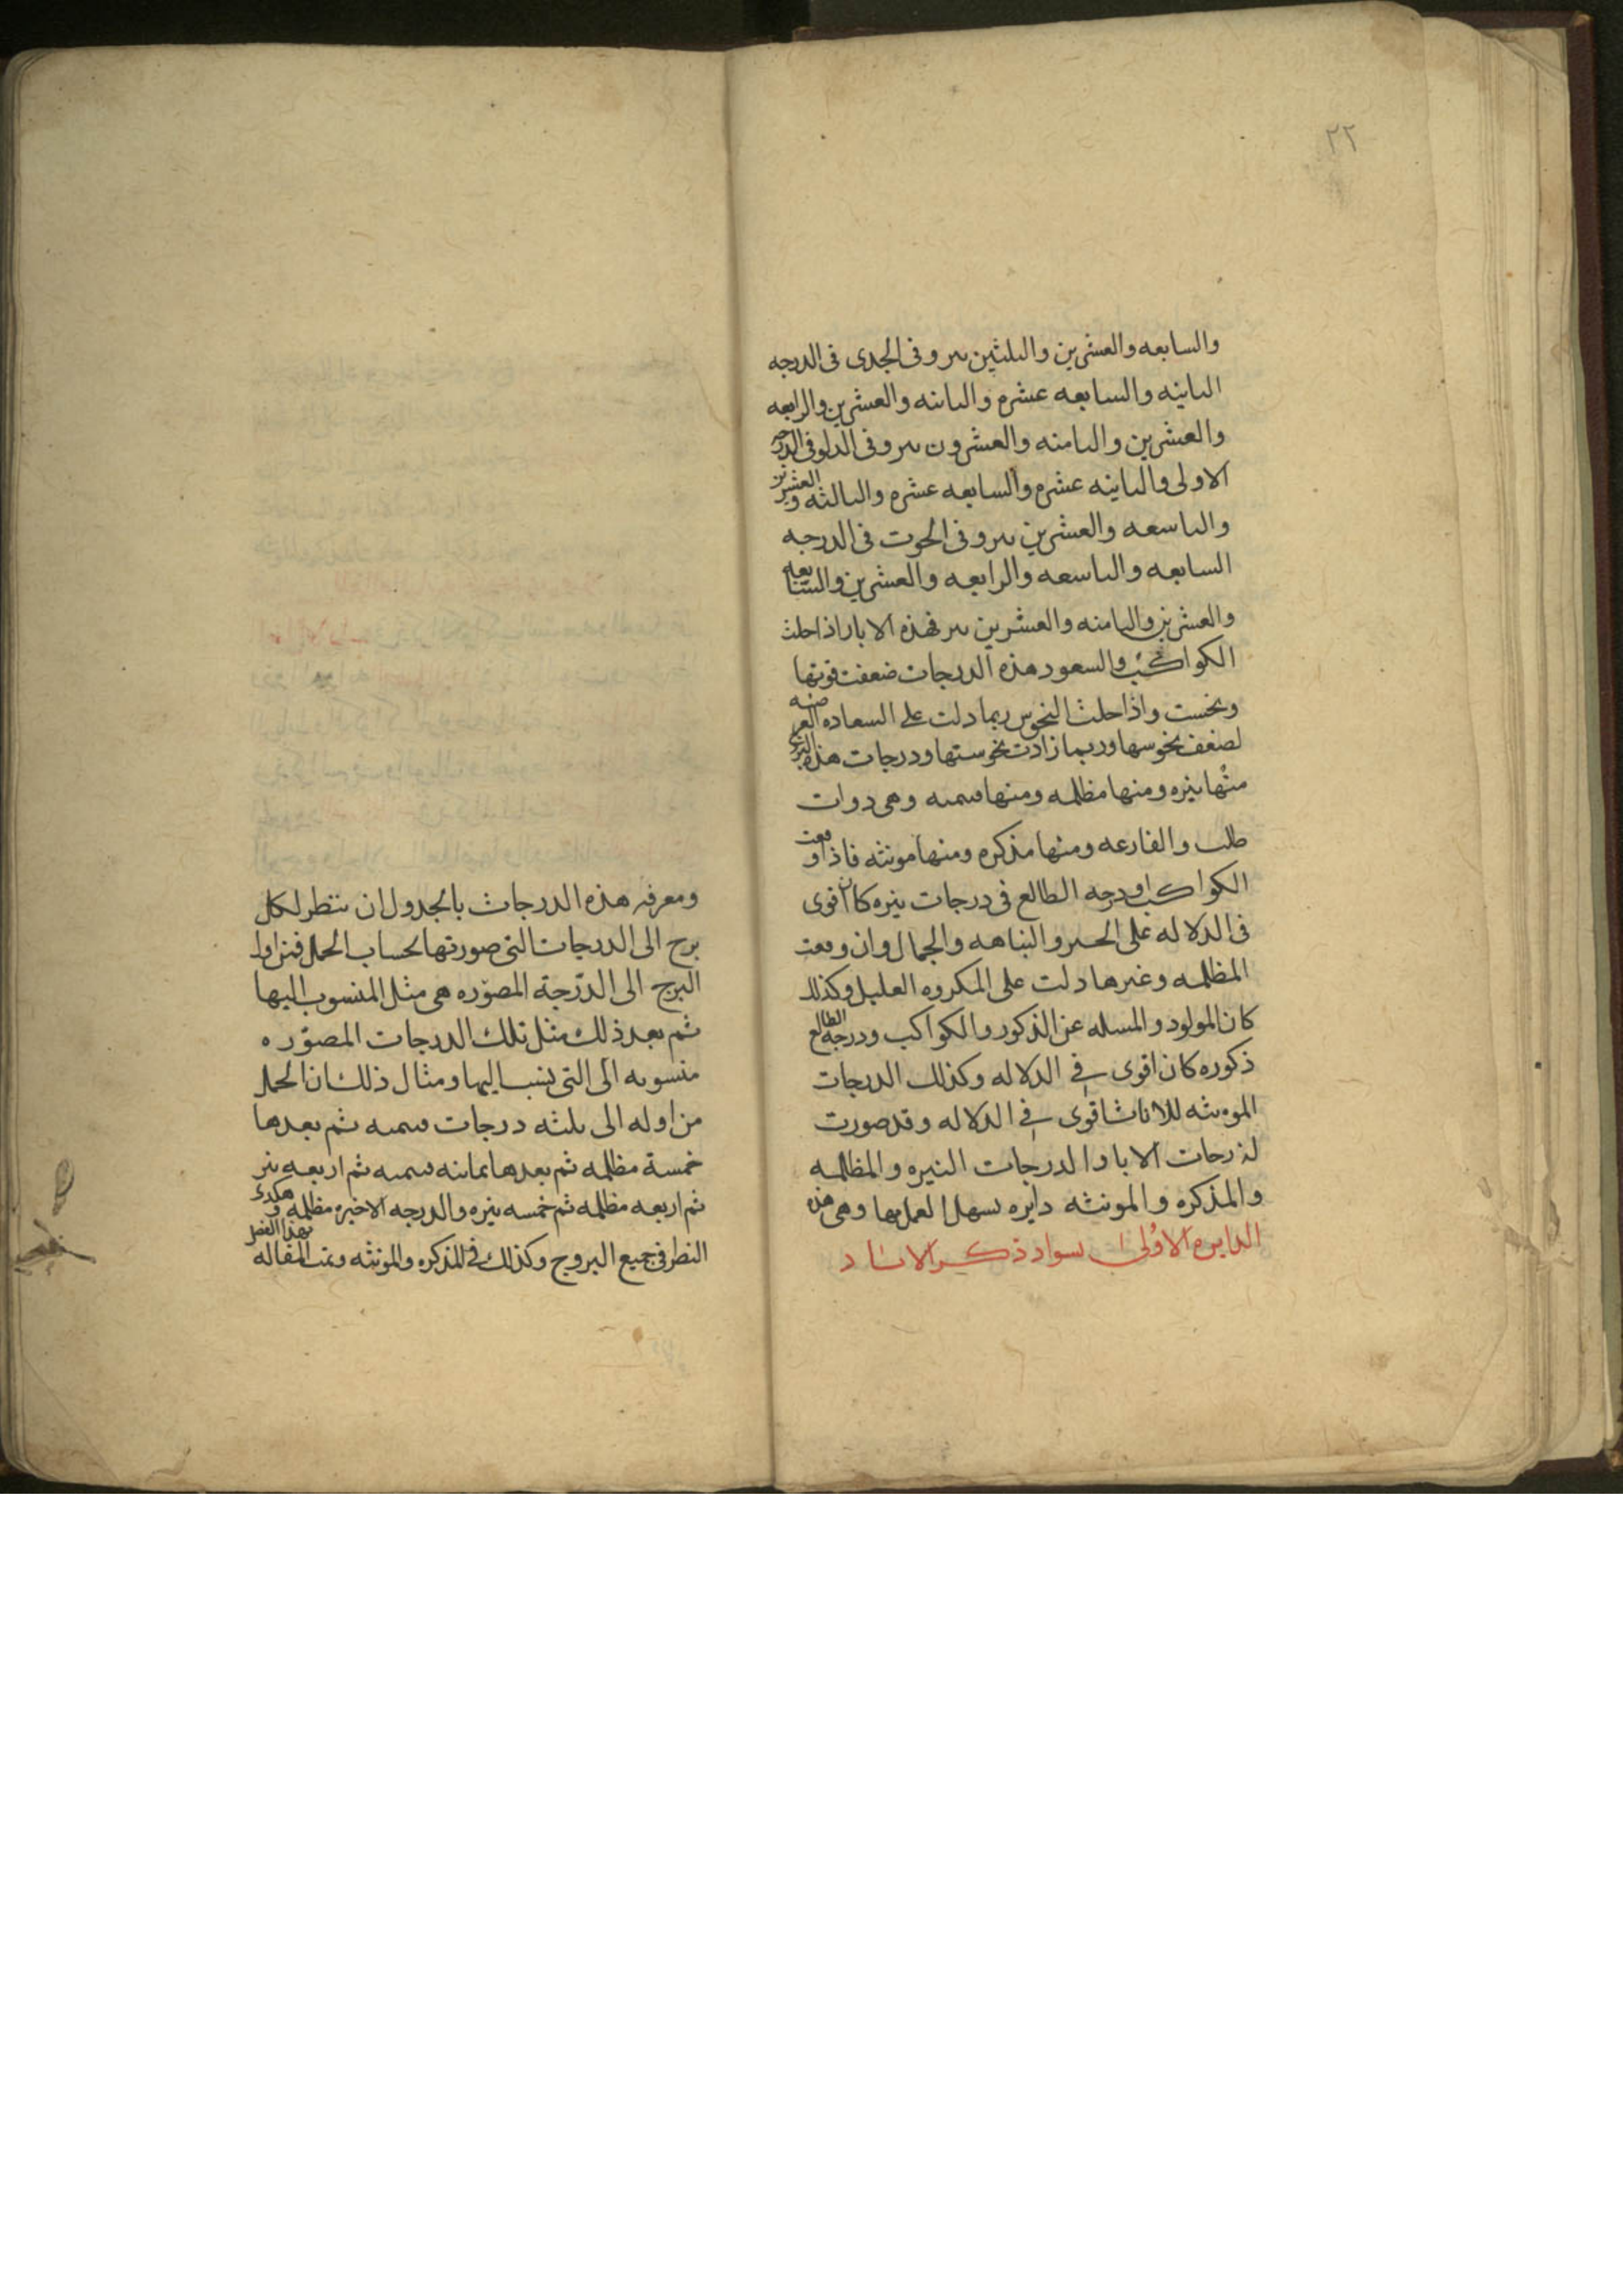 ٢٢
والسابعه والعشرين والثلثين بير وفى الجدى فى الدرجه
الثانيه والسابعه عشره والثانيه والعشرين والرابعه
والعشرين والثامنه والعشرون بير وفى الدلو فى الدرجه
الاولى والثانيه عشره والسابعه عشره والثالثه والعشرين
والتاسعه والعشرين بير وفى الحوت فى الدرجه
السابعه والتاسعه والرابعه والعشرين والسابعه
والعشرين والثامنه والعشرين بير فهذه الابار اذا حلت
الكواكب والسعود هذه الدرجات ضعفت قوتها
ونحست واذا حلت النحوس ربما دلت على السعاده
لضعف نحوسها وربما زادت نحوستها ودرجات هذه البروج
منها نيره ومنها مظلمه ومنها قتمه وهى دوات
والفارعه ومنها مذكره ومنها مونثه فاذا وقعت
الكواكب او درجه الطالع فى درجات نيره كان اقوى
فى الدلاله على الحسن والنباهه والجمال وان وقعت
المظلمه وغيرها دلت على المكروه القليل وكذلك
كان المولود والمسله عن الذكور والكواكب ودرجه الطالع
ذكوره كان اقوى فى الدلاله وكذلك الدرجات
المونثه للاناث اقوى فى الدلاله وقد صورت
لدرجات الابار والدرجات النيره والمظلمه
والمذكره والمونثه دايره يسهل العمل بها وهى هذه
الدايره الاولى سواد ذكر الابار
ومعرفه هذه الدرجات بالجدول ان تنظر لكل
برج الى الدرجات التى صورتها لحساب الحمل فمن اول
البرج الى الدرجة المصوره هى مثل المنسوب اليها
ثم بعد ذلك مثل تلك الدرجات المصوره
منسوبه الى التى ينسب اليها ومثال ذلك ان الحمل
من اوله الى ثلثه درجات قتمه ثم بعدها
خمسة مظلمه ثم بعدها ثمانيه قتمه ثم اربعه نير
ثم اربعه مظلمه ثم خمسه نيره والدرجه الاخيره مظلمه وهكدى
النظر فى جميع البروج وكذلك فى المذكره والمونثه وتمت المقاله بهذا الفصل